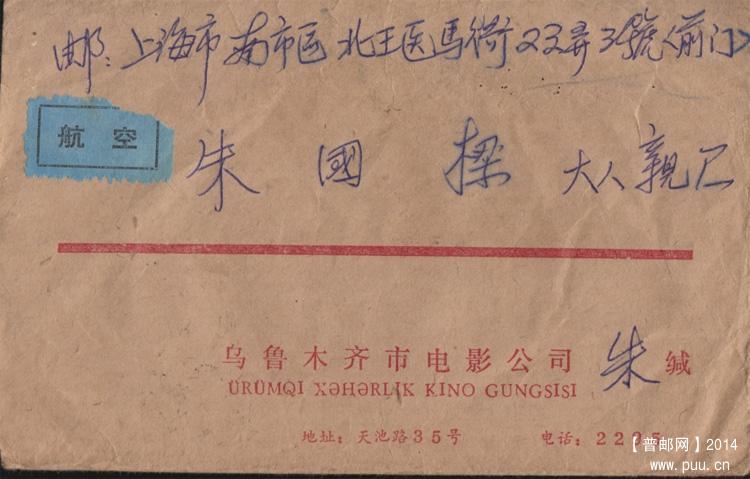 邮: 上海市南市区北王医馬街223弄3號(前门)
航空
朱國樑 大人親启
乌鲁木齐市电影公司 朱 缄
ÜRÜMQI XƏHƏRLIK KINO GUNGSISI
地址: 天池路35号 电话: 2295
【普邮网】2014
www.puu.cn